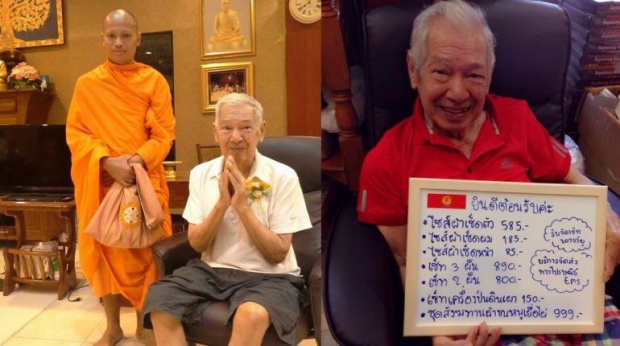 ยินดีต้อนรับค่ะ
• ไซส์ผ้าเช็ดตัว 585.-
• ไซส์ผ้าเช็ดผม 185.-
• ไซส์ผ้าเช็ดหน้า 85.-
• เซ็ท 3 ผืน 890.-
• เซ็ท 2 ผืน 800.-
• เซ็ทเครื่องปั่นดินเผา 150.-
• ชุดสังฆทานผ้าขนหนูเยื่อไผ่ 999.-
รับจัดเซ็ท
ของขวัญ
บริการจัดส่ง
ทางไปรษณีย์
EMS